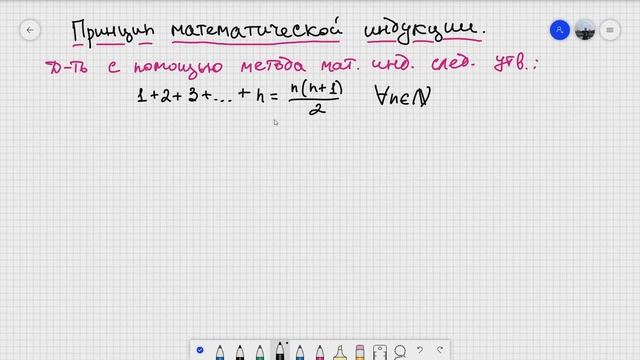 Принцип математической индукции.
Д-ть с помощью метода мат. инд. след. утв.:
1+2+3+...+n = n(n+1)/2 ∀n∈ℕ